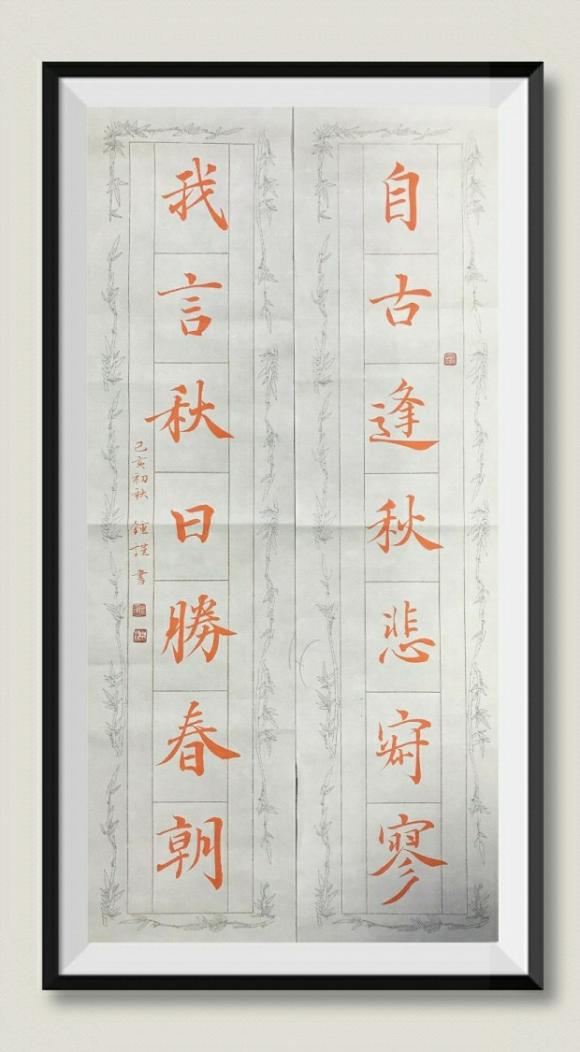 自古逢秋悲寂寥
我言秋日勝春朝
己亥初秋 鍾謨書